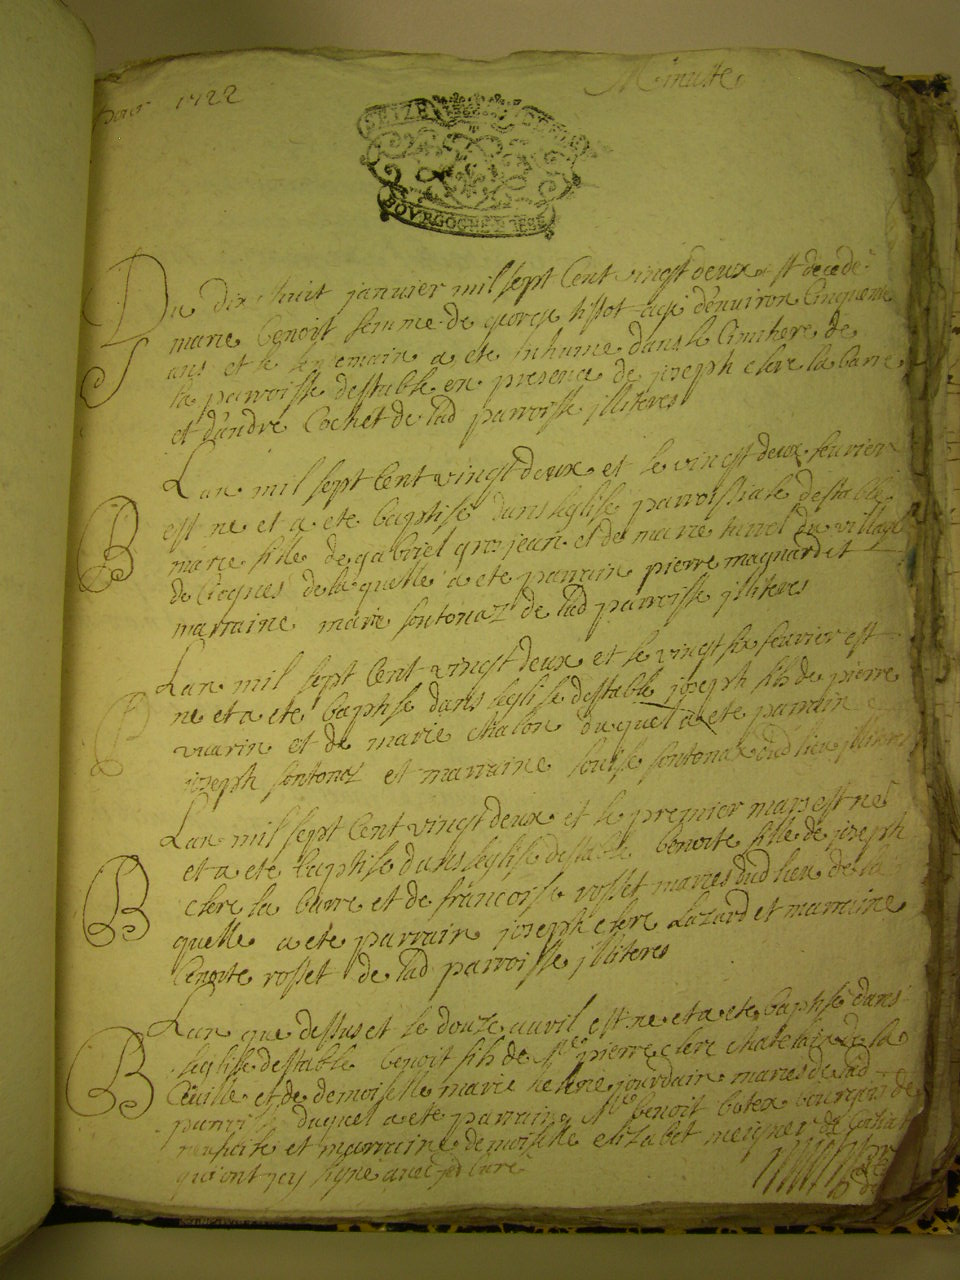 1722
Minutte
SEIZE DEN
BOVRGOGNE BRESSE
Du dix huit janvier mil sept Cent vingt deux est decedé
marie benoist femme de george tissot agé denviron Cinquente
ans et le lendemain a eté inhumé dans le Cimithere de
la parroisse destable en presence de joseph clerc la barre
et dandre Cochet de lad parroisse illiteres
B
Lan mil sept Cent vingt deux et le vingt deux fevrier
est ne et a eté baptisé dans leglise parroissiale destable
marie fille de gabriel grosjean et de marie du village
de de laquelle a eté parrain pierre magnard et
marraine marie fontenaz de lad parroisse illiteres
B
Lan mil sept Cent vingt deux et le vingt six fevrier est
ne et a eté baptisé dans leglise destable joseph fils de pierre
vuarin et de marie chalon duquel a eté parrain
joseph fontenaz et marraine fontenaz dud lieu illiteres
B
Lan mil sept Cent vingt deux et le premier mars est né
et a eté baptisé dans leglise destable benoite fille de joseph
clerc la barre et de francoise rosset maries dud lieu de la
quelle a eté parrain joseph clerc Lazard et marraine
benoite rosset de lad parroisse illiteres
B
Lan que dessus et le douze avril est ne et a eté baptisé dans
leglise destable benoit fils de Me pierre clerc chatelain de la
et de demoiselle marie helene jourdain maries de lad
parroisse duquel a eté parrain Me benoit botex bourgeois de
et marraine demoiselle elizabet meigner de
qui ont icy signe avec led Curé